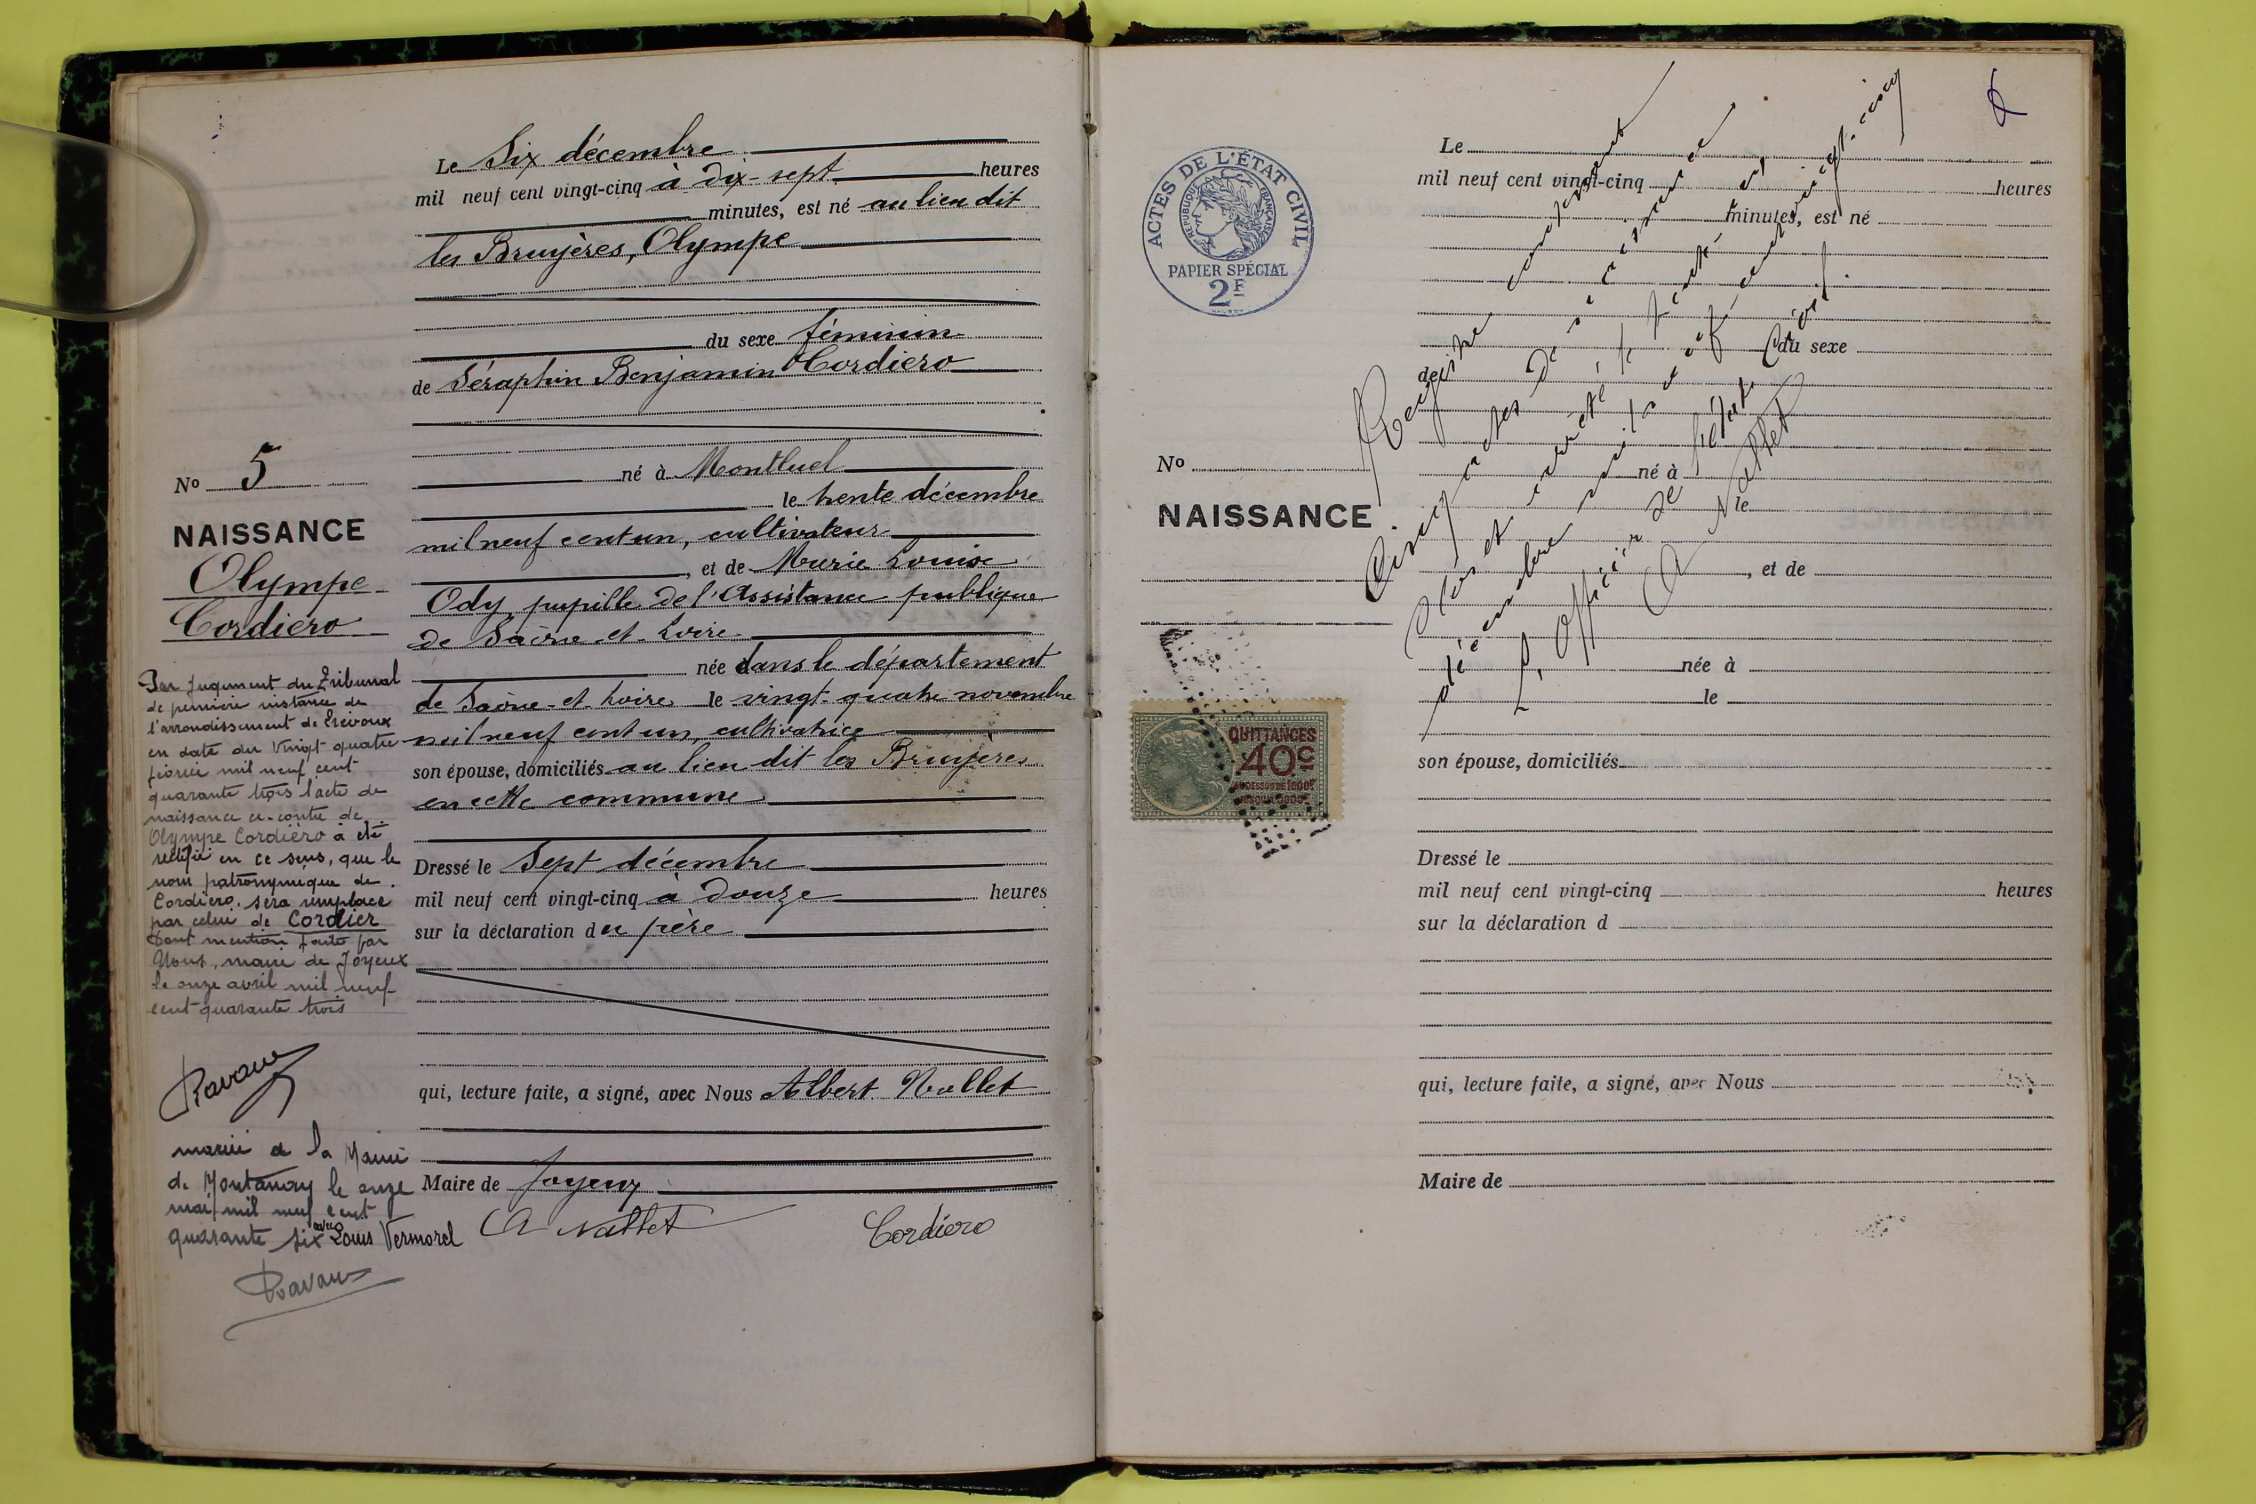 Le Six décembre
mil neuf cent vingt-cinq à dix-sept heures
minutes, est né au lieu dit
les Bruyères, Olympe
du sexe féminin
de Séraphin Benjamin Cordiero
né à Montluel
le trente décembre
mil neuf cent un, cultivateur
, et de Marie Louise
Ody, pupille de l'Assistance publique
de Saône-et-Loire
née dans le département
de Saône-et-Loire le vingt-quatre novembre
mil neuf cent un, cultivatrice
son épouse, domiciliés au lieu dit les Bruyères
en cette commune
Dressé le Sept décembre
mil neuf cent vingt-cinq à douze heures
sur la déclaration du père
qui, lecture faite, a signé, avec Nous Albert Nallet
Maire de Joyeux
A Nallet Cordiero
No 5
NAISSANCE
Olympe
Cordiero
Par jugement du Tribunal
de première instance de
l'arrondissement de Trévoux
en date du vingt quatre
février mil neuf cent
quarante trois l'acte de
naissance ci-contre de
Olympe Cordiero a été
rectifié en ce sens, que le
nom patronymique de
Cordiero sera remplacé
par celui de Cordier
Dont mention faite par
Nous, maire de Joyeux
le onze avril mil neuf
cent quarante trois
mariée à la Mairie
de Montanay le onze
mai mil neuf cent
quarante six avec Louis Vermorel
ACTES DE L'ÉTAT CIVIL
RÉPUBLIQUE FRANÇAISE
PAPIER SPÉCIAL
2F
Le
mil neuf cent vingt-cinq heures
minutes, est né
du sexe
de
né à
le
, et de
née à
le
son épouse, domiciliés
Dressé le
mil neuf cent vingt-cinq heures
sur la déclaration d
qui, lecture faite, a signé, avec Nous
Maire de
No
NAISSANCE
QUITTANCES
40c
Registre contenant
Cinq actes de naissance
clos et arrêté le trente et un
décembre mil neuf cent vingt-cinq
L'officier de l'état civil.
A Nallet